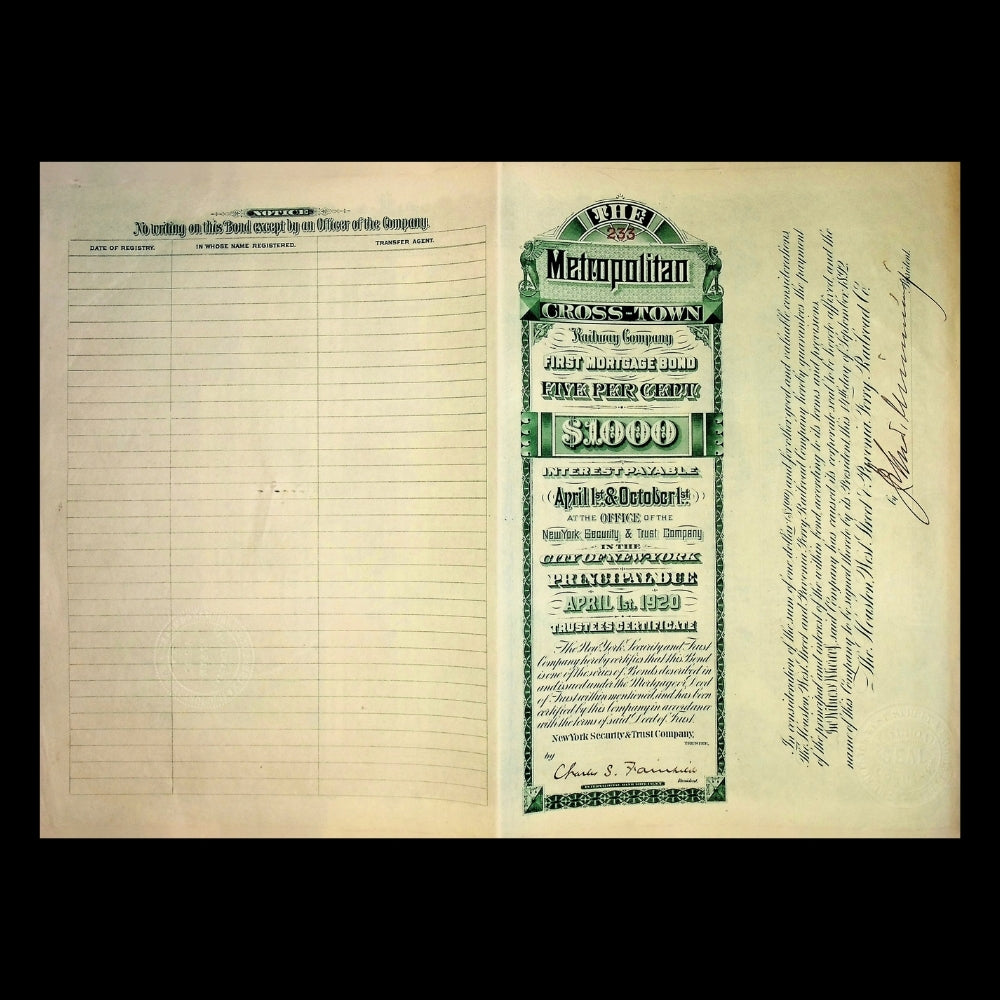 NOTICE
No writing on this Bond except by an Officer of the Company.
DATE OF REGISTRY. IN WHOSE NAME REGISTERED. TRANSFER AGENT.
THE
233
Metropolitan
CROSS-TOWN
Railway Company
FIRST MORTGAGE BOND
FIVE PER CENT.
$1000
INTEREST PAYABLE
April 1st & October 1st
AT THE OFFICE OF THE
New York Security & Trust Company
IN THE
CITY OF NEW YORK
PRINCIPAL DUE
APRIL 1st. 1920
TRUSTEES CERTIFICATE
The New York Security and Trust
Company hereby certifies that this Bond
is one of the series of Bonds described in
and issued under the Mortgage or Deed
of Trust within mentioned, and has been
certified by this Company in accordance
with the terms of said Deed of Trust.
New York Security & Trust Company,
TRUSTEE,
by
Charles S. Fairchild
President.
In consideration of the sum of one dollar and further good and valuable considerations
The Houston, West Street and Pavonia Ferry Railroad Company hereby guarantees the payment
of the principal and interest of the within bond according to its terms and provisions.
In Witness Whereof, said Company has caused its corporate seal to be hereto affixed and the
name of this Company to be signed thereto by its President this 14th day of September 1892.
The Houston, West Street & Pavonia Ferry Railroad Co.
by
President.